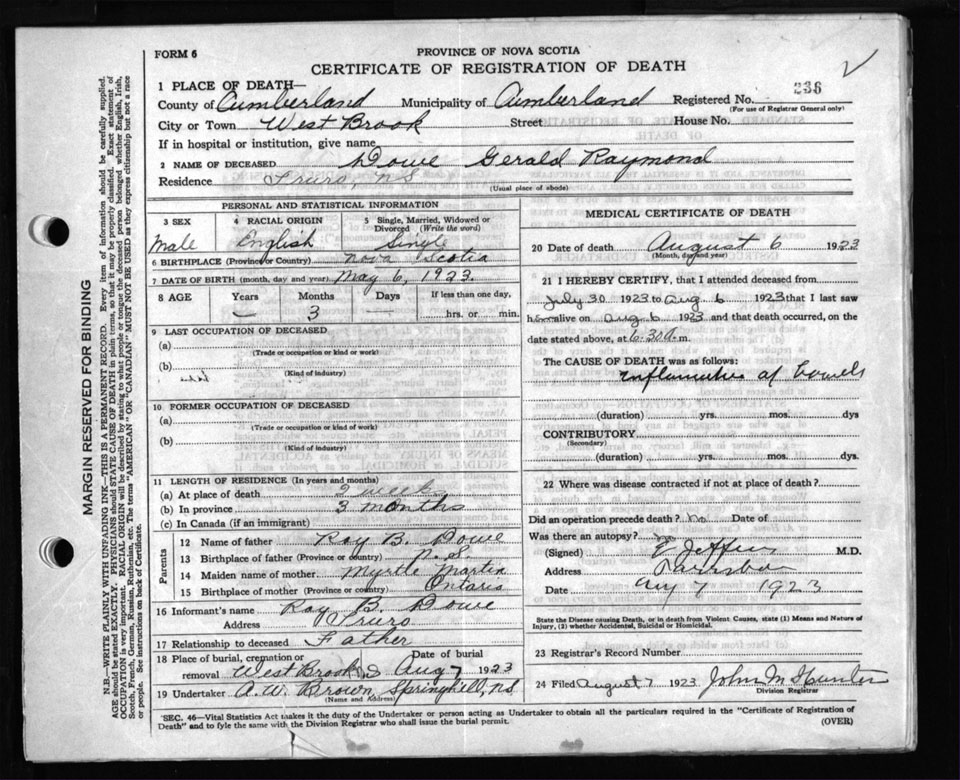 FORM 6
PROVINCE OF NOVA SCOTIA
CERTIFICATE OF REGISTRATION OF DEATH
1 PLACE OF DEATH—
County of Cumberland Municipality of Cumberland Registered No. 236
(For use of Registrar General only)
City or Town West Brook Street House No.
If in hospital or institution, give name
2 NAME OF DECEASED Dowe Gerald Raymond
Residence Truro, NS
(Usual place of abode)
PERSONAL AND STATISTICAL INFORMATION
3 SEX 4 RACIAL ORIGIN 5 Single, Married, Widowed or Divorced (Write the word)
Male English Single
6 BIRTHPLACE (Province or Country) Nova Scotia
7 DATE OF BIRTH (month, day and year) May 6, 1923
8 AGE Years Months Days If less than one day,
— 3 — hrs. or min.
9 LAST OCCUPATION OF DECEASED
(a)
(Trade or occupation or kind or work)
(b)
(Kind of industry)
10 FORMER OCCUPATION OF DECEASED
(a)
(Trade or occupation or kind of work)
(b)
(Kind of industry)
11 LENGTH OF RESIDENCE (In years and months)
(a) At place of death 2 week
(b) In province 3 months
(c) In Canada (if an immigrant)
Parents
12 Name of father Roy B. Dowe
13 Birthplace of father (Province or country) N.S
14 Maiden name of mother Myrtle Martin
15 Birthplace of mother (Province or country) Ontario
16 Informant's name Roy B. Dowe
Address Truro
17 Relationship to deceased Father
18 Place of burial, cremation or removal Date of burial
West Brook Aug 7 1923
19 Undertaker A.W. Brown, Springhill, N.S.
(Name and Address)
MEDICAL CERTIFICATE OF DEATH
20 Date of death August 6 1923
(Month, day and year)
21 I HEREBY CERTIFY, that I attended deceased from
July 30 1923 to Aug 6 1923 that I last saw
h alive on Aug 6 1923 and that death occurred, on
date stated above, at 6.30 a. m.
The CAUSE OF DEATH was as follows:
Inflamation of bowels
(duration) yrs. mos. dys
CONTRIBUTORY
(Secondary)
(duration) yrs. mos. dys.
22 Where was disease contracted if not at place of death?
Did an operation precede death? No Date of
Was there an autopsy?
(Signed) M.D.
Address Parrsboro
Date Aug 7 1923
State the Disease causing Death, or in death from Violent Causes, state (1) Means and Nature of
Injury, (2) whether Accidental, Suicidal or Homicidal.
23 Registrar's Record Number
24 Filed August 7 1923 John M Hunter
Division Registrar
'SEC. 46—Vital Statistics Act makes it the duty of the Undertaker or person acting as Undertaker to obtain all the particulars required in the "Certificate of Registration of
Death" and to fyle the same with the Division Registrar who shall issue the burial permit.
(OVER)
MARGIN RESERVED FOR BINDING
N.B.—WRITE PLAINLY WITH UNFADING INK—THIS IS A PERMANENT RECORD. Every item of information should be carefully supplied.
AGE should be stated EXACTLY. PHYSICIANS should STATE CAUSE OF DEATH in plain terms, so that it may be properly classified. Exact statement of
OCCUPATION is very important. RACIAL ORIGIN will be described by stating to what people or tongue the deceased person belonged, whether English, Irish,
Scotch, French, German, Russian, Ruthenian, etc. The terms "AMERICAN" or "CANADIAN" MUST NOT BE USED as they express citizenship but not a race
or people. See instructions on back of Certificate.